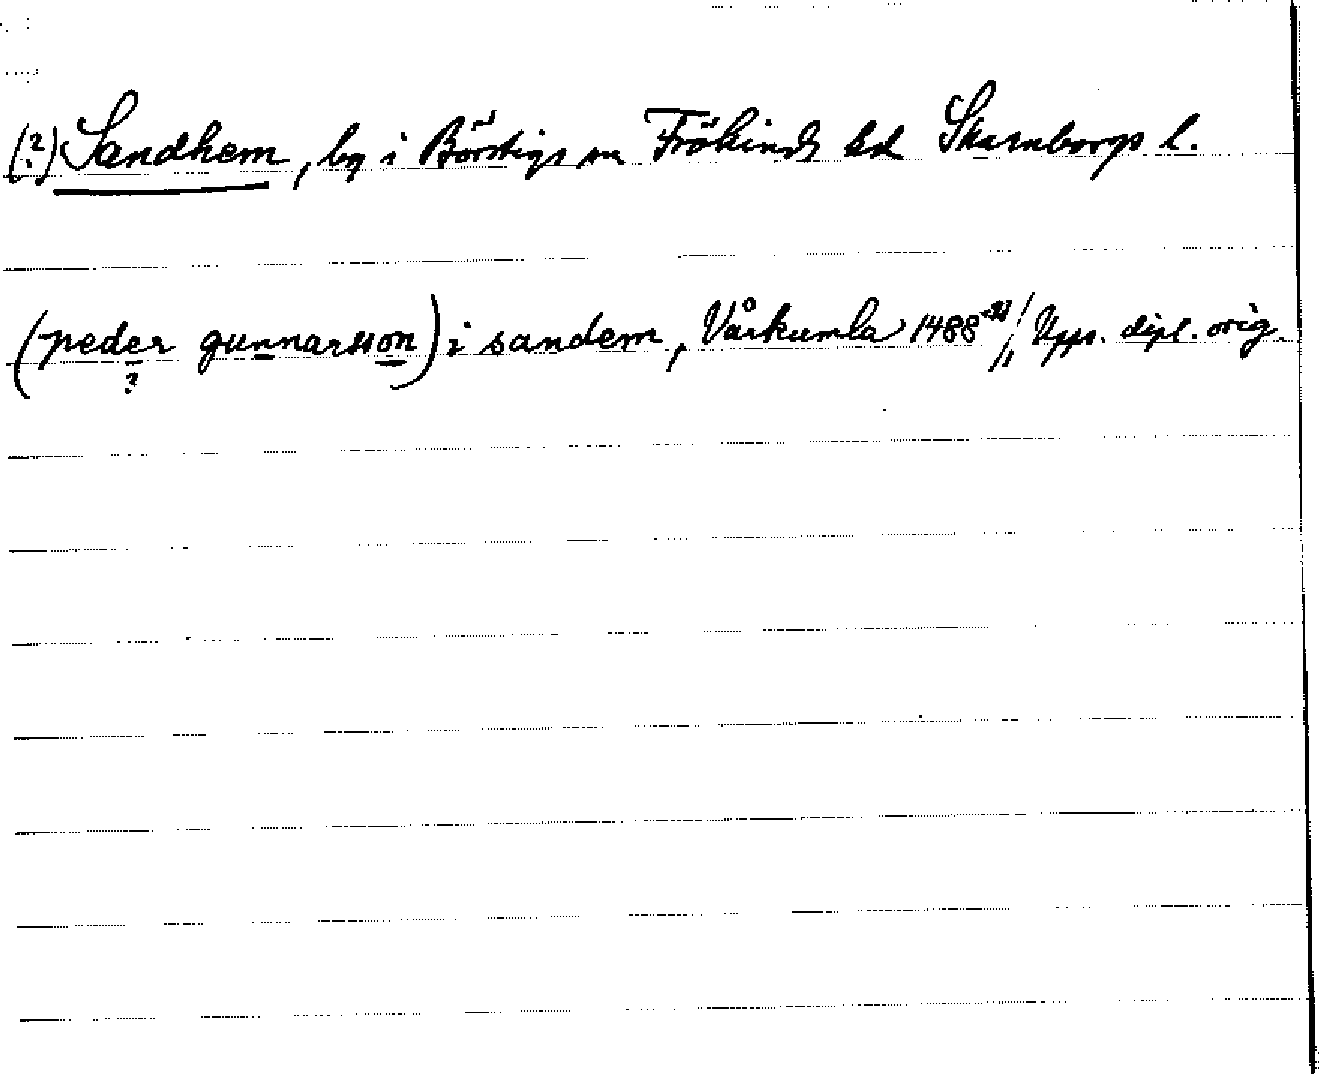 (?) Sandhem, by i Börstigs sn Frökinds hd Skaraborgs l.
(peder gunnarsson) i sandem, Vårkumla 1488 Upps. dipl. orig.
?